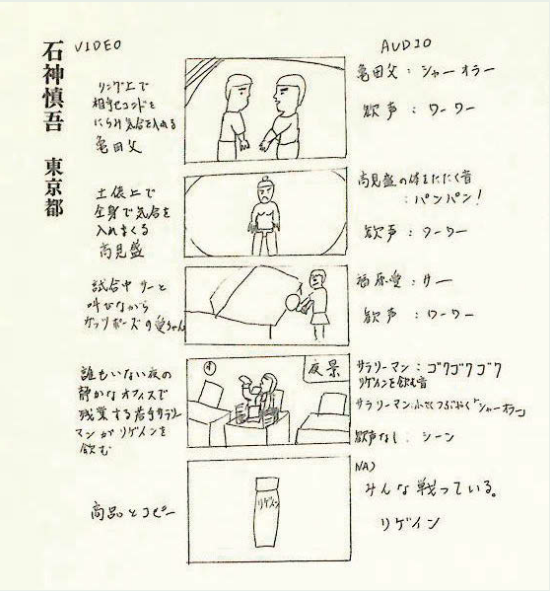 石神慎吾 東京都
VIDEO
AUDIO
リング上で
相手セコンドを
にらみ気合を入れる
亀田父
亀田父：シャーオラー
歓声：ワーワー
土俵上で
全身で気合を
入れまくる
高見盛
高見盛の体をたたく音
：パンパン！
歓声：ワーワー
試合中サーと
叫びながら
ガッツポーズの愛ちゃん
福原愛：サー
歓声：ワーワー
誰もいない夜の
静かなオフィスで
残業する若手サラリー
マンがリゲインを
飲む
夜景
サラリーマン：ゴクゴクゴク
リゲインを飲む音
サラリーマン：小さくつぶやく「シャーオラー」
歓声なし：シーン
商品とコピー
リゲイン
NA)
みんな戦っている。
リゲイン